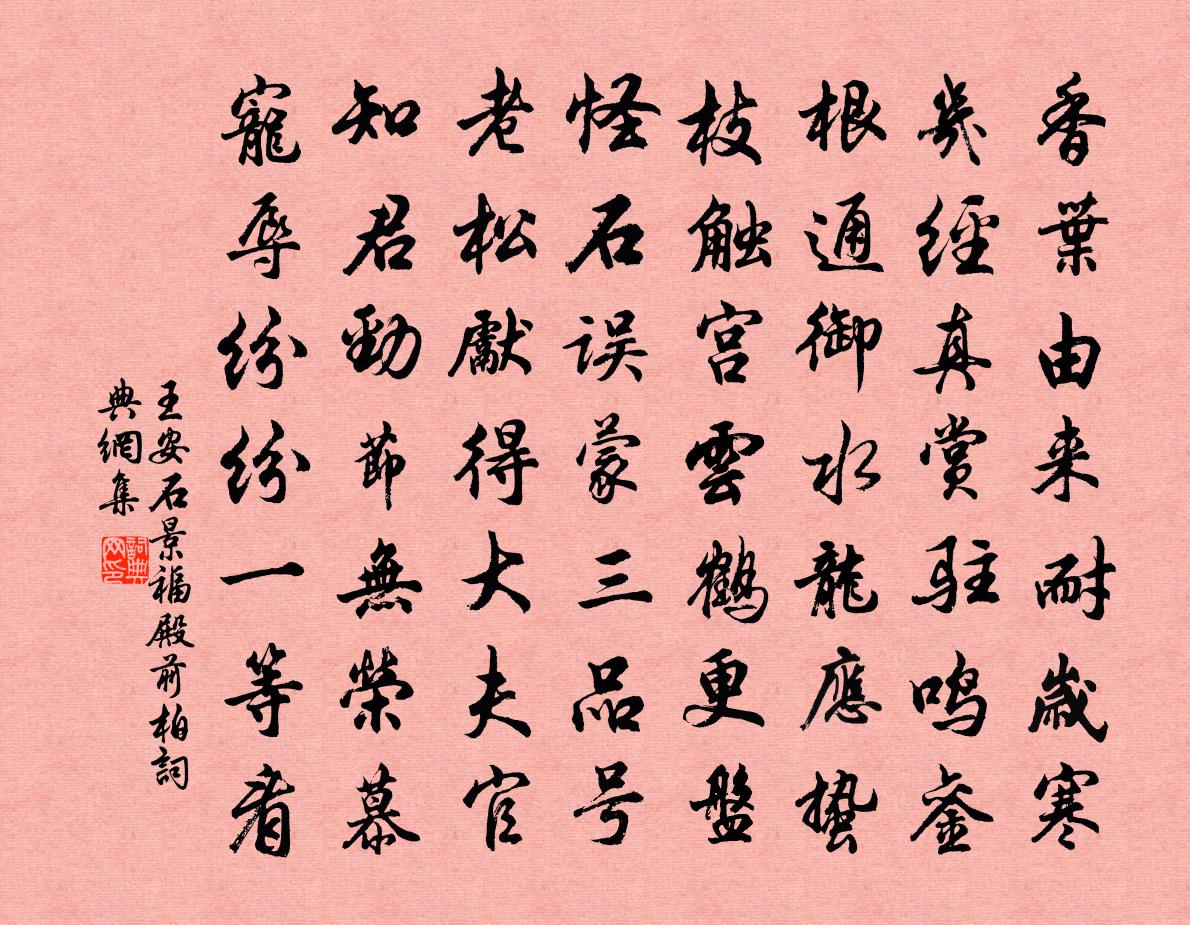 香葉由来耐歲寒
幾經真賞駐鸣鑾
根通御水龍應蟄
枝触宫雲鶴更盤
怪石误蒙三品号
老松獻得大夫官
知君勁節無榮慕
寵辱紛紛一等看
王安石景福殿前柏詞
典網集
詞典
网印